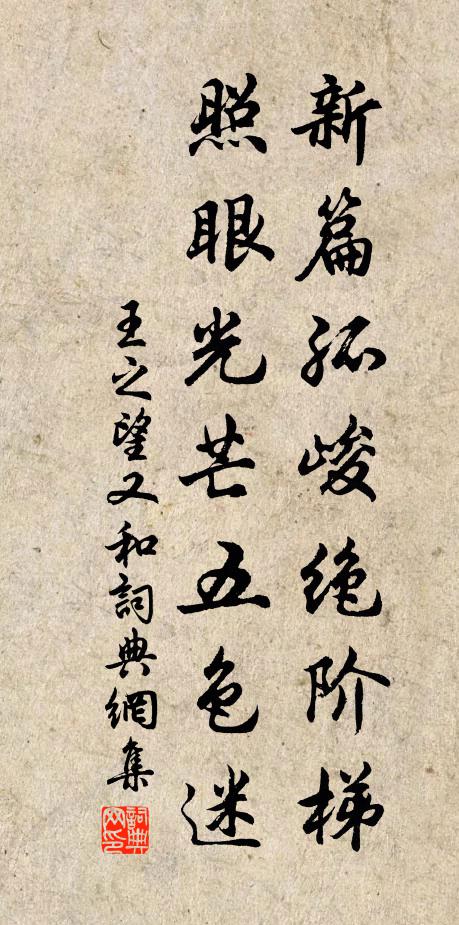 新篇孤峻绝阶梯
照眼光芒五色迷
王之望又和詞典網集
詞典网印